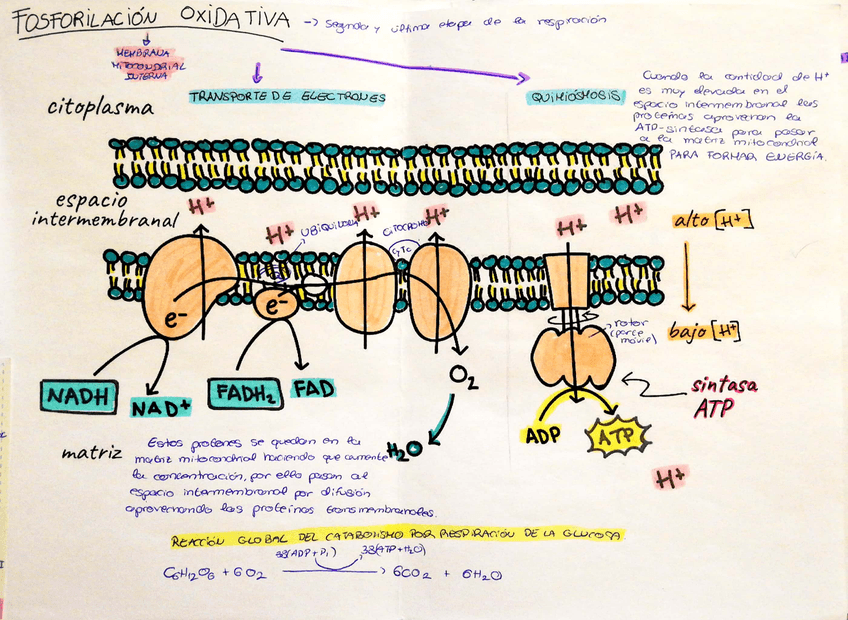 FOSFORILACIÓN OXIDATIVA → Segunda y última etapa de la respiración
MEMBRANA
MITOCONDRIAL
INTERNA
TRANSPORTE DE ELECTRONES
QUIMIÓSMOSIS
Cuando la cantidad de H+
es muy elevada en el
espacio intermembranal las
proteínas aprovechan la
ATP-sintasa para pasar
a la matriz mitocondrial
PARA FORMAR ENERGÍA.
citoplasma
espacio
intermembranal
H+
H+
H+
H+
H+
H+
UBIQUINONA
CITOCROMO
CYTC
alto [H+]
bajo [H+]
e-
e-
rotor
(parte
móvil)
NADH
NAD+
FADH2
FAD
O2
H2O
sintasa
ATP
ADP
ATP
H+
matriz
Estos protones se quedan en la
matriz mitocondrial haciendo que aumente
la concentración, por ello pasan al
espacio intermembranal por difusión
aprovechando las proteínas transmembranales.
REACCIÓN GLOBAL DEL CATABOLISMO POR RESPIRACIÓN DE LA GLUCOSA
38(ADP+Pi) 38(ATP+H2O)
C6H12O6 + 6O2 → 6CO2 + 6H2O